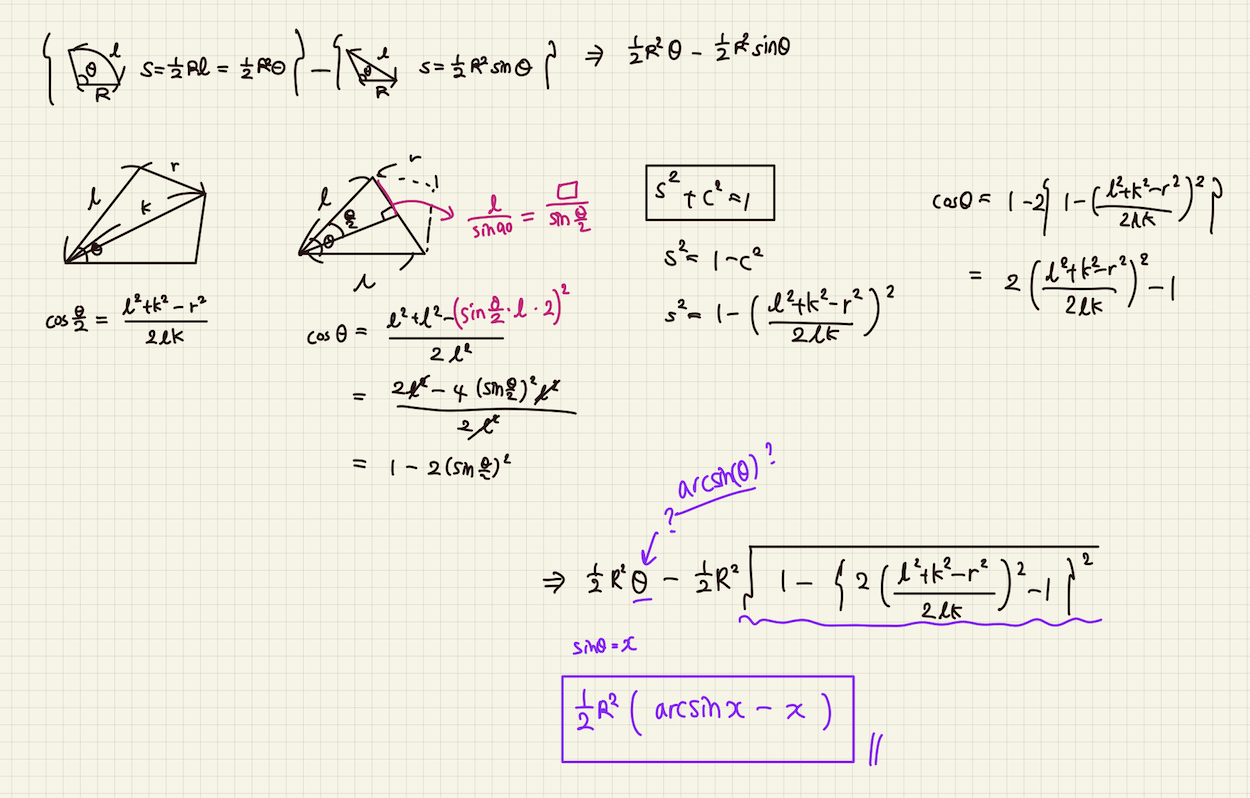 { l θ R S=½Rl = ½R²θ } − { l θ R S=½R²sinθ } ⇒ ½R²θ − ½R²sinθ
r l k θ
cos θ/2 = (l²+k²−r²)/2lk
r l θ/2 θ l
l/sin90 = □/sin θ/2
cosθ = (l²+l²−(sin θ/2 · l · 2)²)/2l²
= (2l²−4(sin θ/2)²l²)/2l²
= 1−2(sin θ/2)²
s²+c²=1
s²=1−c²
s²=1−((l²+k²−r²)/2lk)²
cosθ = 1−2{1−((l²+k²−r²)/2lk)²}
= 2((l²+k²−r²)/2lk)²−1
arcsin(θ)?
?
⇒ ½R²θ − ½R²√(1−{2((l²+k²−r²)/2lk)²−1}²)
sinθ=x
½R²(arcsinx − x)